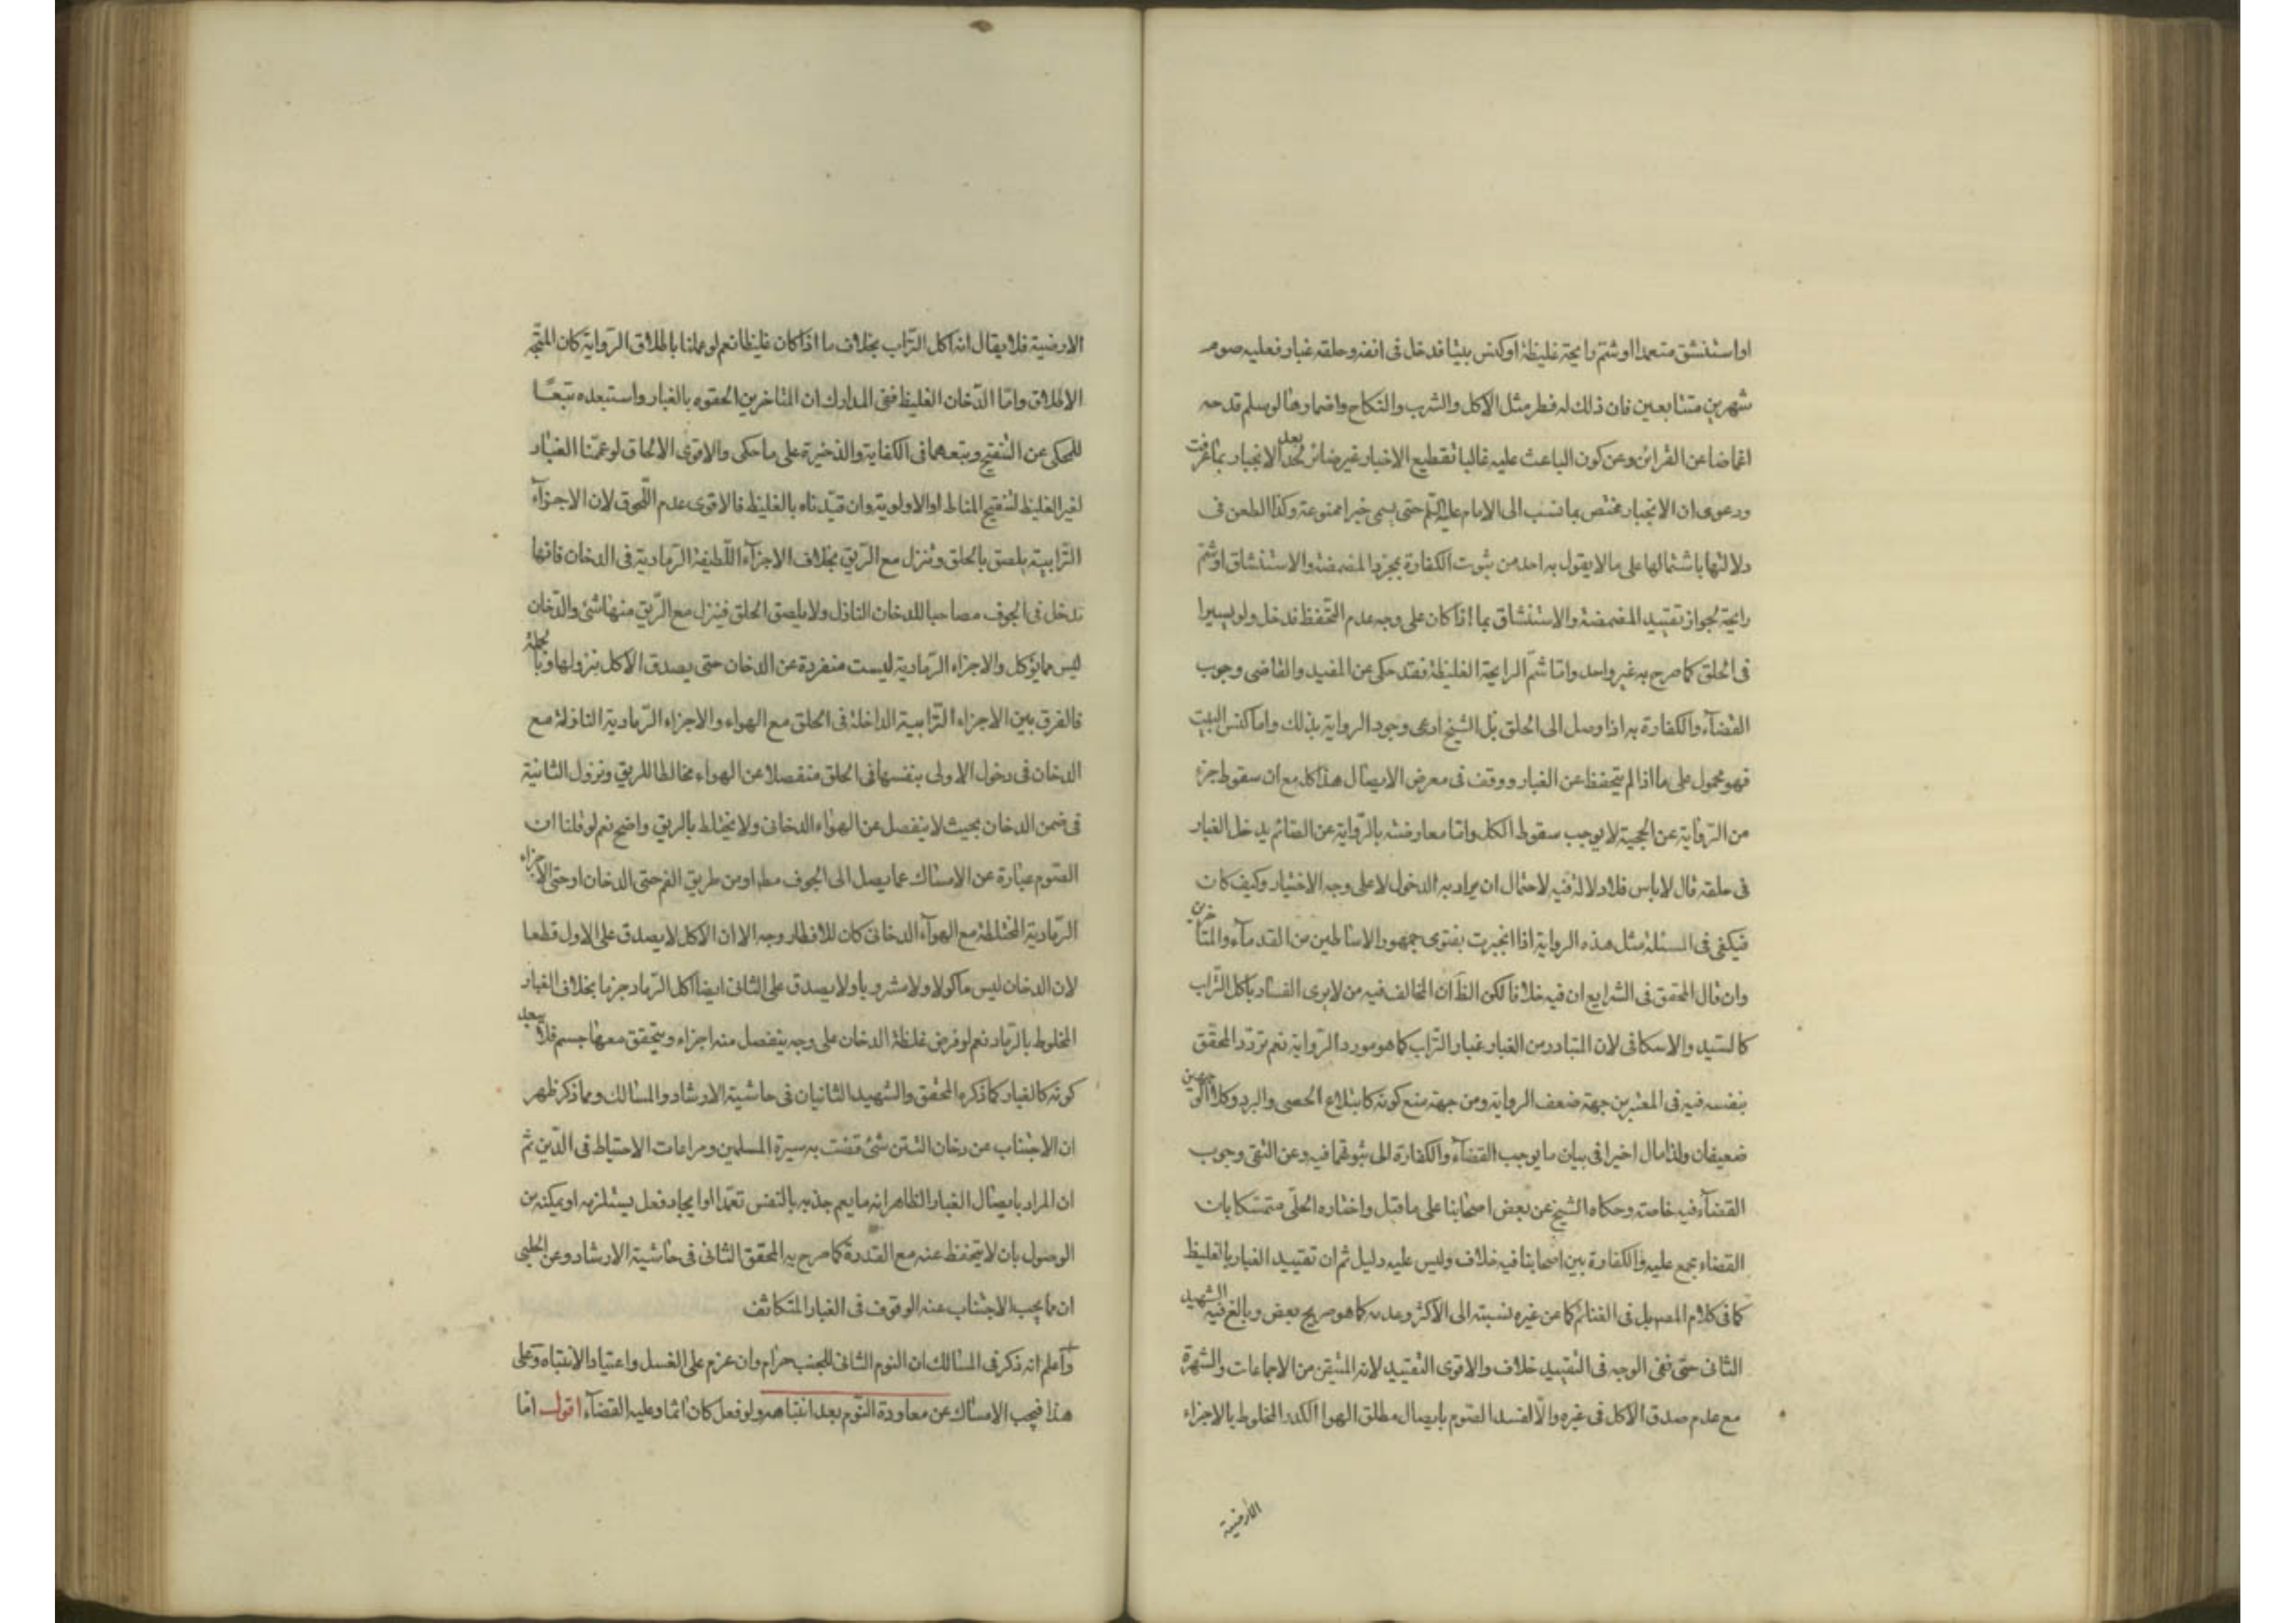 او استنشق متعمدا او شتم رايحة غليظة او كنس بيتا فدخل في انفه و حلقه غبار فعليه صوم
شهرين متتابعين فان ذلك له فطر مثل الاكل والشرب والنكاح واضمارها لو سلم قدحه
اغماضا عن القرائن وعن كون الباعث عليه غالبا تقطيع الاخبار غير ضائر بعد الانجبار بما عرفت
ودعوى ان الانجبار مختص بما نسب الى الامام عليه السلم حتى يسمى خبرا ممنوعة وكذا الطعن في
دلالتها باشتمالها على ما لا يقول به احد من ثبوت الكفارة بمجرد المضمضة والاستنشاق او شم
رايحة لجواز تقييد المضمضة والاستنشاق بما اذا كان على وجه عدم التحفظ فدخل ولو يسيرا
في الحلق كما صرح به غير واحد واما شم الرايحة الغليظة فقد حكى عن المفيد والقاضى وجوب
القضآء والكفارة به اذا وصل الى الحلق بل الشيخ ادعى وجود الرواية بذلك واما كنس البيت
فهو محمول على ما اذا لم يتحفظ عن الغبار ووقف في معرض الايصال هذا كله مع ان سقوط جزء
من الرواية عن الحجية لا يوجب سقوط الكل واما معارضته بالرواية عن الصائم يدخل الغبار
في حلقه قال لا باس فلا دلالة فيه لاحتمال ان يراد به الدخول لا على وجه الاختيار وكيف كان
فيكفى في المسئلة مثل هذه الرواية اذا انجبرت بفتوى جمهور الاساطين من القدمآء والمتاخرين
وان قال المحقق في الشرايع ان فيه خلافا لكن الظ ان المخالف فيه من لا يرى الفساد باكل التراب
كالسيد والاسكافى لان المتبادر من الغبار غبار التراب كما هو مورد الرواية نعم تردد المحقق
بنفسه فيه في المعتبر من جهة ضعف الرواية ومن جهة منع كونه كابتلاع الحصى والبرد وكلا الوجهين
ضعيفان ولذا مال اخيرا في بيان ما يوجب القضآء والكفارة الى ثبوتهما فيه وعن التقى وجوب
القضآء فيه خاصة وحكاه الشيخ عن بعض اصحابنا على ما قيل واختاره الحلى متمسكا بان
القضاء مجمع عليه والكفارة بين اصحابنا فيه خلاف وليس عليه دليل ثم ان تقييد الغبار بالغليظ
كما في كلام المص بل في الغنائم كما عن غيره نسبته الى الاكثر وعدمه كما هو صريح بعض وبالغ فيه الشهيد
الثانى حتى نفى الوجه في التقييد خلاف والاقوى التقييد لانه المتيقن من الاجماعات والشهرة
مع عدم صدق الاكل في غيره والا لفسد الصوم بايصال مطلق الهوا الكدر المخلوط بالاجزاء
الارضية
الارضية فلا يقال انه اكل التراب بخلاف ما اذا كان غليظا نعم لو عملنا باطلاق الرواية كان المتجه
الاطلاق واما الدخان الغليظ ففى المدارك ان المتاخرين الحقوه بالغبار واستبعده تبعا
للمحكى عن التنقيح وتبعهما في الكفاية والذخيرة على ما حكى والاقوى الالحاق لو عممنا الغبار
لغير الغليظ لتنقيح المناط او الاولوية وان قيدناه بالغليظ فالاقوى عدم اللحوق لان الاجزآء
الترابية يلصق بالحلق وتنزل مع الريق بخلاف الاجزآء اللطيفة الرمادية في الدخان فانها
تدخل في الجوف مصاحبا للدخان النازل ولا يلصق الحلق فينزل مع الريق منها شئ والدخان
ليس مما يؤكل والاجزاء الرمادية ليست منفردة عن الدخان حتى يصدق الاكل بنزولها وبالجملة
فالفرق بين الاجزاء الترابية الداخلة في الحلق مع الهواء والاجزاء الرمادية النازلة مع
الدخان في دخول الاولى بنفسها في الحلق منفصلا عن الهواء مخالطا للريق ونزول الثانية
في ضمن الدخان بحيث لا ينفصل عن الهواء الدخانى ولا يختلط بالريق واضح نعم لو قلنا ان
الصوم عبارة عن الامساك عما يصل الى الجوف مط او من طريق الفم حتى الدخان او حتى الاجزاء
الرمادية المختلطة مع الهوآء الدخانى كان للافطار وجه الا ان الاكل لا يصدق على الاول قطعا
لان الدخان ليس ماكولا ولا مشروبا ولا يصدق على الثانى ايضا اكل الرماد جزما بخلاف الغبار
المخلوط بالرماد نعم لو فرض غلظة الدخان على وجه ينفصل منه اجزاء ويتحقق معها جسم فلا يبعد
كونه كالغبار كما ذكره المحقق والشهيد الثانيان في حاشية الارشاد والمسالك ومما ذكر ظهر
ان الاجتناب عن دخان التتن شئ قضت به سيرة المسلمين ومراعات الاحتياط في الدين ثم
ان المراد بايصال الغبار الظاهر انه ما يعم جذبه بالتنفس تعمدا او ايجاد فعل يستلزمه او يمكنه من
الوصول بان لا يتحفظ عنه مع القدرة كما صرح به المحقق الثانى في حاشية الارشاد وعن الحلبى
ان مما يجب الاجتناب عنه الوقوف في الغبار المتكاثف
واعلم انه ذكر في المسالك ان النوم الثانى للجنب حرام وان عزم على الغسل واعتياد الانتباه وعلى
هذا فيجب الامساك عن معاودة النوم بعد انتباهه ولو فعل كان اثما وعليه القضآء اقول اما